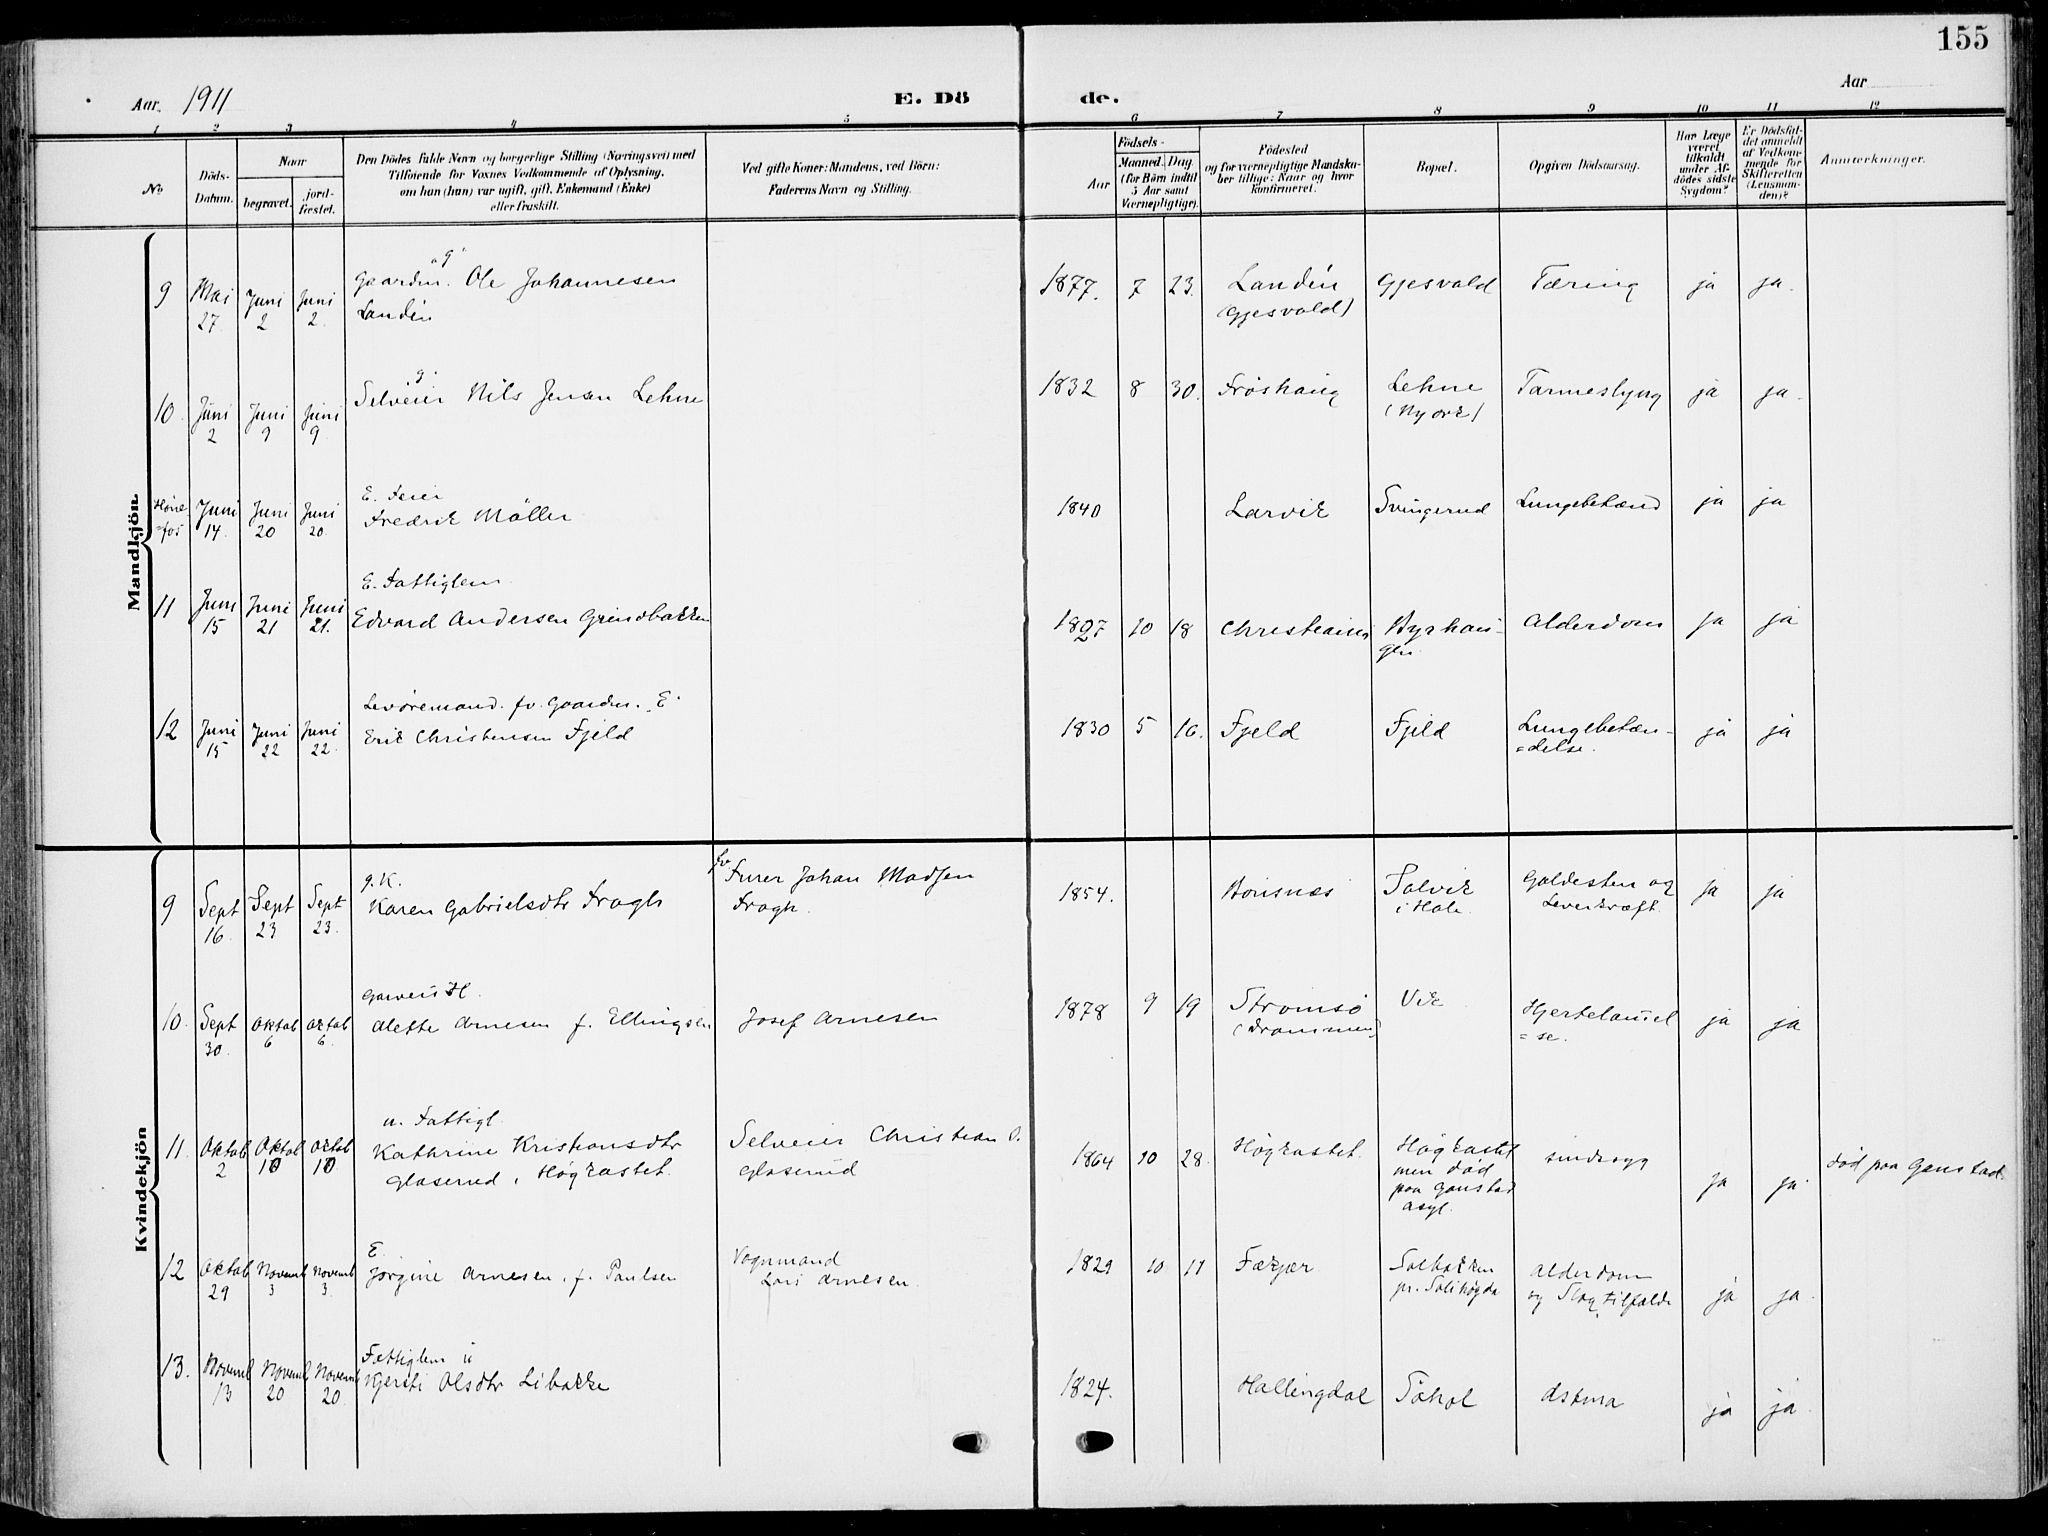 155
Aar 1911 E. Döde. Aar
1 2 3 4 5 6 7 8 9 10 11 12
No.
Döds-
Datum.
Naar
begravet.
jord-
fæstet.
Den Dödes fulde Navn og borgerlige Stilling (Næringsvei) med
Tilföiende for Voxnes Vedkommende af Oplysning,
om han (hun) var ugift, gift, Enkemand (Enke)
eller fraskilt.
Ved gifte Koner: Mandens, ved Börn:
Faderens Navn og Stilling.
Födsels-
Aar
Maaned. Dag.
(for Börn indtil
5 Aar samt
Værnepligtige).
Födested
og for værnepligtige Mandska-
ber tillige: Naar og hvor
konfirmeret.
Bopæl.
Opgiven Dödsaarsag.
Har Læge
været
tilkaldt
under Af-
dödes sidste
Sygdom?
Er Dödsfal-
det anmeldt
af Vedkom-
mende for
Skifteretten
(Lensman-
den)?
Anmærkninger.
Mandkjön.
9 Mai 27. Juni 2 Juni 2. Gaardm. "g" Ole Johannesen
Landén
1877. 7 23. Landén
(Gjesvald)
Gjesvald Tæring ja ja.
10. Juni 2 Juni 9 Juni 9. Selveier g. Nils Jensen Lehne
1832 8 30. Fröshaug Lehne
(Ny ovr)
Tarmeslyng ja ja.
Höne
=fos
Juni 14. Juni 20 Juni 20. E. Feier
Fredrik Möller
1840 Larvik Svingerud Lungebetænd ja ja
11 Juni 15 Juni 21 Juni 21. E. Fattiglem
Edvard Andersen Grindbakken
1827 10 18 Christiania
Alderdom ja ja
12 Juni 15 Juni 22 Juni 22. Levöremand. fv. Gaardm. E.
Erik Christensen Fjeld
1830 5 16. Fjeld Fjeld Lungebetæn-
=delse.
ja ja
Kvindekjön
9 Sept 16. Sept 23 Sept 23. g.K.
Karen Gabrielsdtr Fragh
fv Furer Johan Madsen
Fragh.
1854. Bönsnæs Solvik
i Hole.
Galdesten og
Leverkræft.
ja ja
10. Sept 30. Oktob 6 Oktob 6. Garveri H.
Alette Arnesen f. Ellingsen
Josef Arnesen
1878 9 19 Strömsö
(Drammen)
Vik Hjertelammel
=se.
ja ja
11. Oktob 2 Oktob 10 Oktob 10 u. Fattigl.
Kathrine Kristiansdtr
Glaserud, Högkastet.
Selveier Christian O.
Glaserud
1864 10 28. Högkastet. Högkastet
men död
paa Gaustad
asyl.
sindssyg ja ja. död paa Gaustad.
12 Oktob 29 Novemb 3 Novemb 3. E
Jörgine Arnesen, f. Paulsen
Vognmand
Lars Arnesen.
1829 10 11 Solbakken
pr. Solihögda
Alderdom
og Slagtilfælde
ja ja.
13. Novemb 13 Novemb 20 Novemb 20. Fattiglem u
Kjersti Olsdtr Libakke
1824. Hallingdal Astma ja ja.